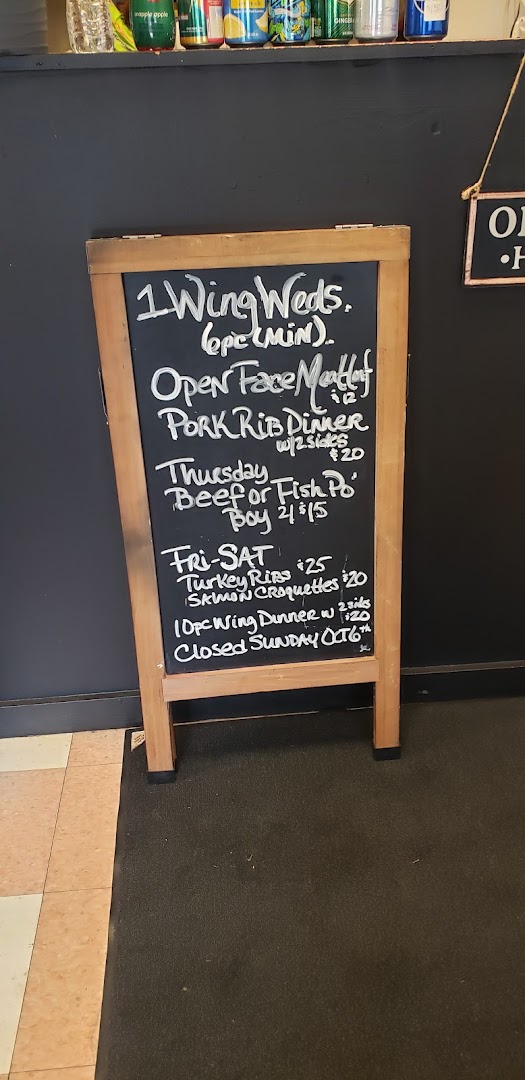 apple apple
GINGER
1 Wing Weds.
6pc (MIN)..
Open Face Meatloaf
$12
PORK RIB Dinner
w/2 sides
$20
Thursday
Beef or Fish Po'
Boy 2/$15
FRI-SAT
Turkey Ribs $25
SALMON CROQUETTES $20
10pc Wing Dinner w 2 sides
$20
Closed SUNDAY OCT 6th